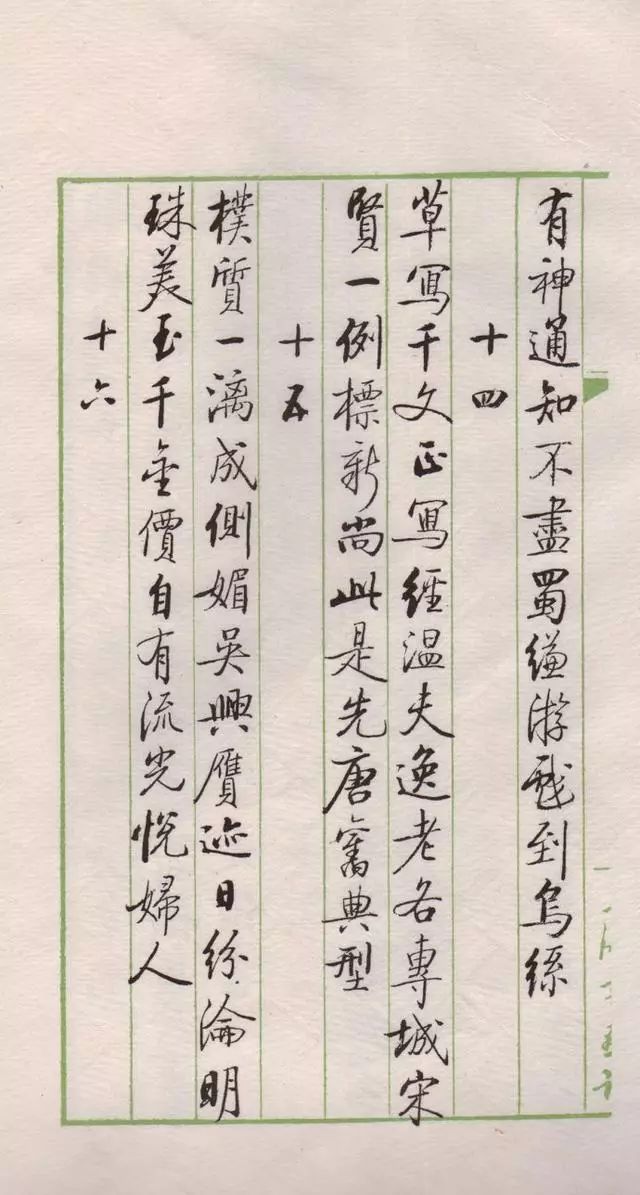 有神通知不盡蜀縑游戲到烏絲
十四
草寫千文正寫經温夫逸老各專城宋
賢一例標新尚此是先唐舊典型
十五
樸質一漓成側媚吳興贋迹日紛淪明
珠美玉千金價自有流光悅婦人
十六